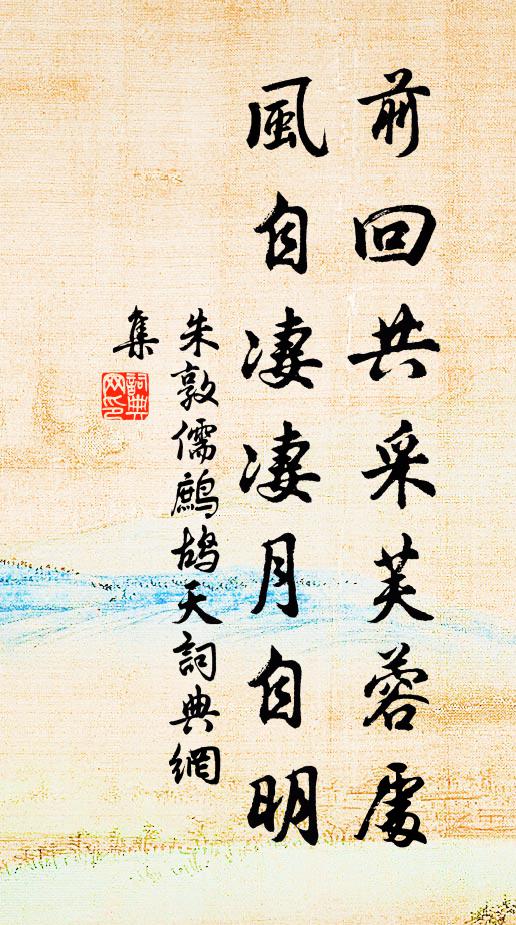 前回共采芙蓉處
風自凄凄月自明
朱敦儒鷓鴣天詞典網
集
詞典
网印